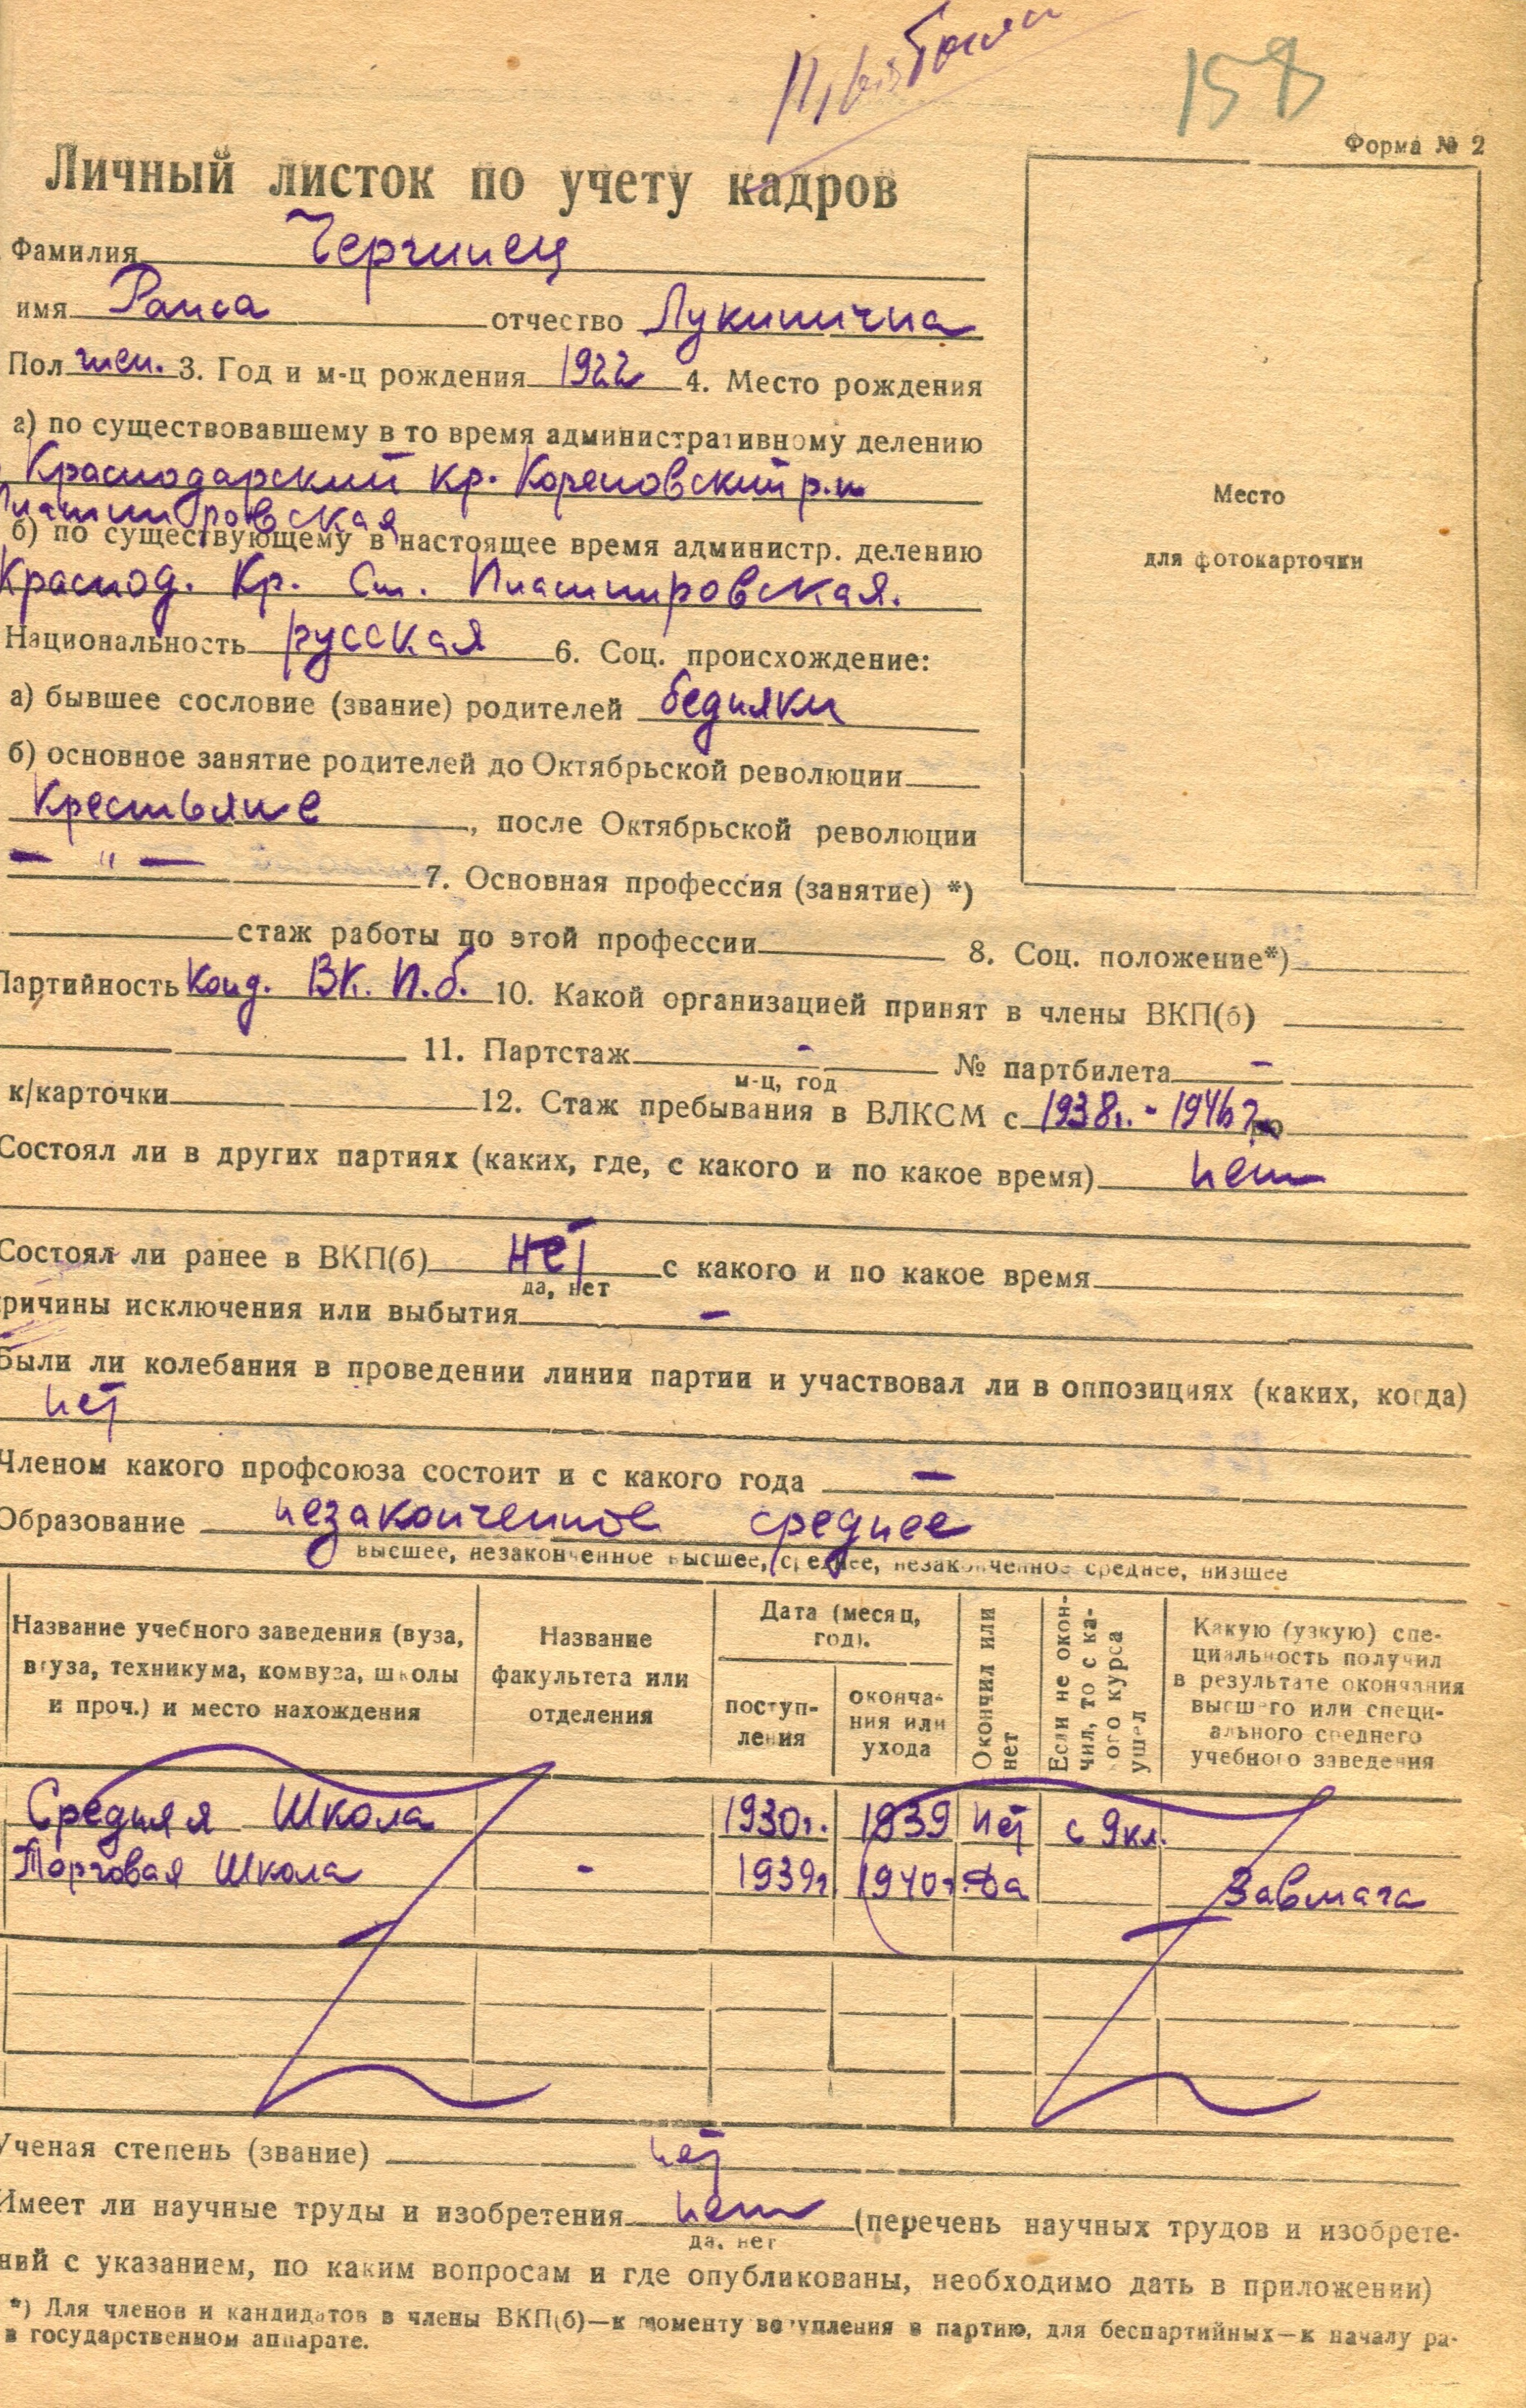 158
Форма № 2
Личный листок по учету кадров
Фамилия Чергинец
имя Раиса отчество Лукинична
Пол жен. 3. Год и м-ц рождения 1922 4. Место рождения
а) по существовавшему в то время административному делению
Краснодарский кр. Кореновский р.н
Платнировская
б) по существующему в настоящее время администр. делению
Краснод. Кр. Ст. Платнировская.
Национальность русская 6. Соц. происхождение:
а) бывшее сословие (звание) родителей бедняки
б) основное занятие родителей до Октябрьской революции
Крестьяне, после Октябрьской революции
— " — 7. Основная профессия (занятие) *)
стаж работы по этой профессии 8. Соц. положение*)
Партийность Канд. ВК.П.б. 10. Какой организацией принят в члены ВКП(б)
11. Партстаж - № партбилета -
м-ц, год
к/карточки 12. Стаж пребывания в ВЛКСМ с 1938г. - 1946г по
Состоял ли в других партиях (каких, где, с какого и по какое время) нет
Состоял ли ранее в ВКП(б) нет с какого и по какое время
да, нет
ричины исключения или выбытия -
Были ли колебания в проведении линии партии и участвовал ли в оппозициях (каких, когда)
нет
Членом какого профсоюза состоит и с какого года —
Образование незаконченное среднее
высшее, незаконченное высшее, среднее, незаконченное среднее, низшее
Название учебного заведения (вуза, втуза, техникума, комвуза, школы и проч.) и место нахождения
Название факультета или отделения
Дата (месяц, год).
поступления
окончания или ухода
Окончил или нет
Если не окончил, то с какого курса ушел
Какую (узкую) специальность получил в результате окончания высшего или специального среднего учебного заведения
Средняя Школа 1930г. 1939 нет с 9кл.
Торговая Школа - 1939г 1940г. Да Завмага
Ученая степень (звание) нет
Имеет ли научные труды и изобретения нет (перечень научных трудов и изобрете-
да, нет
ний с указанием, по каким вопросам и где опубликованы, необходимо дать в приложении)
*) Для членов и кандидатов в члены ВКП(б)—к моменту вступления в партию, для беспартийных—к началу ра-
в государственном аппарате.